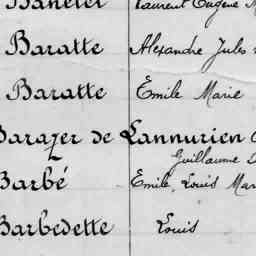 Laurent Eugène
Baratte Alexandre Jules
Baratte Emile Marie
Barazer de Lannurien
Guillaume
Barbé Emile, Louis Mar
Barbedette Louis